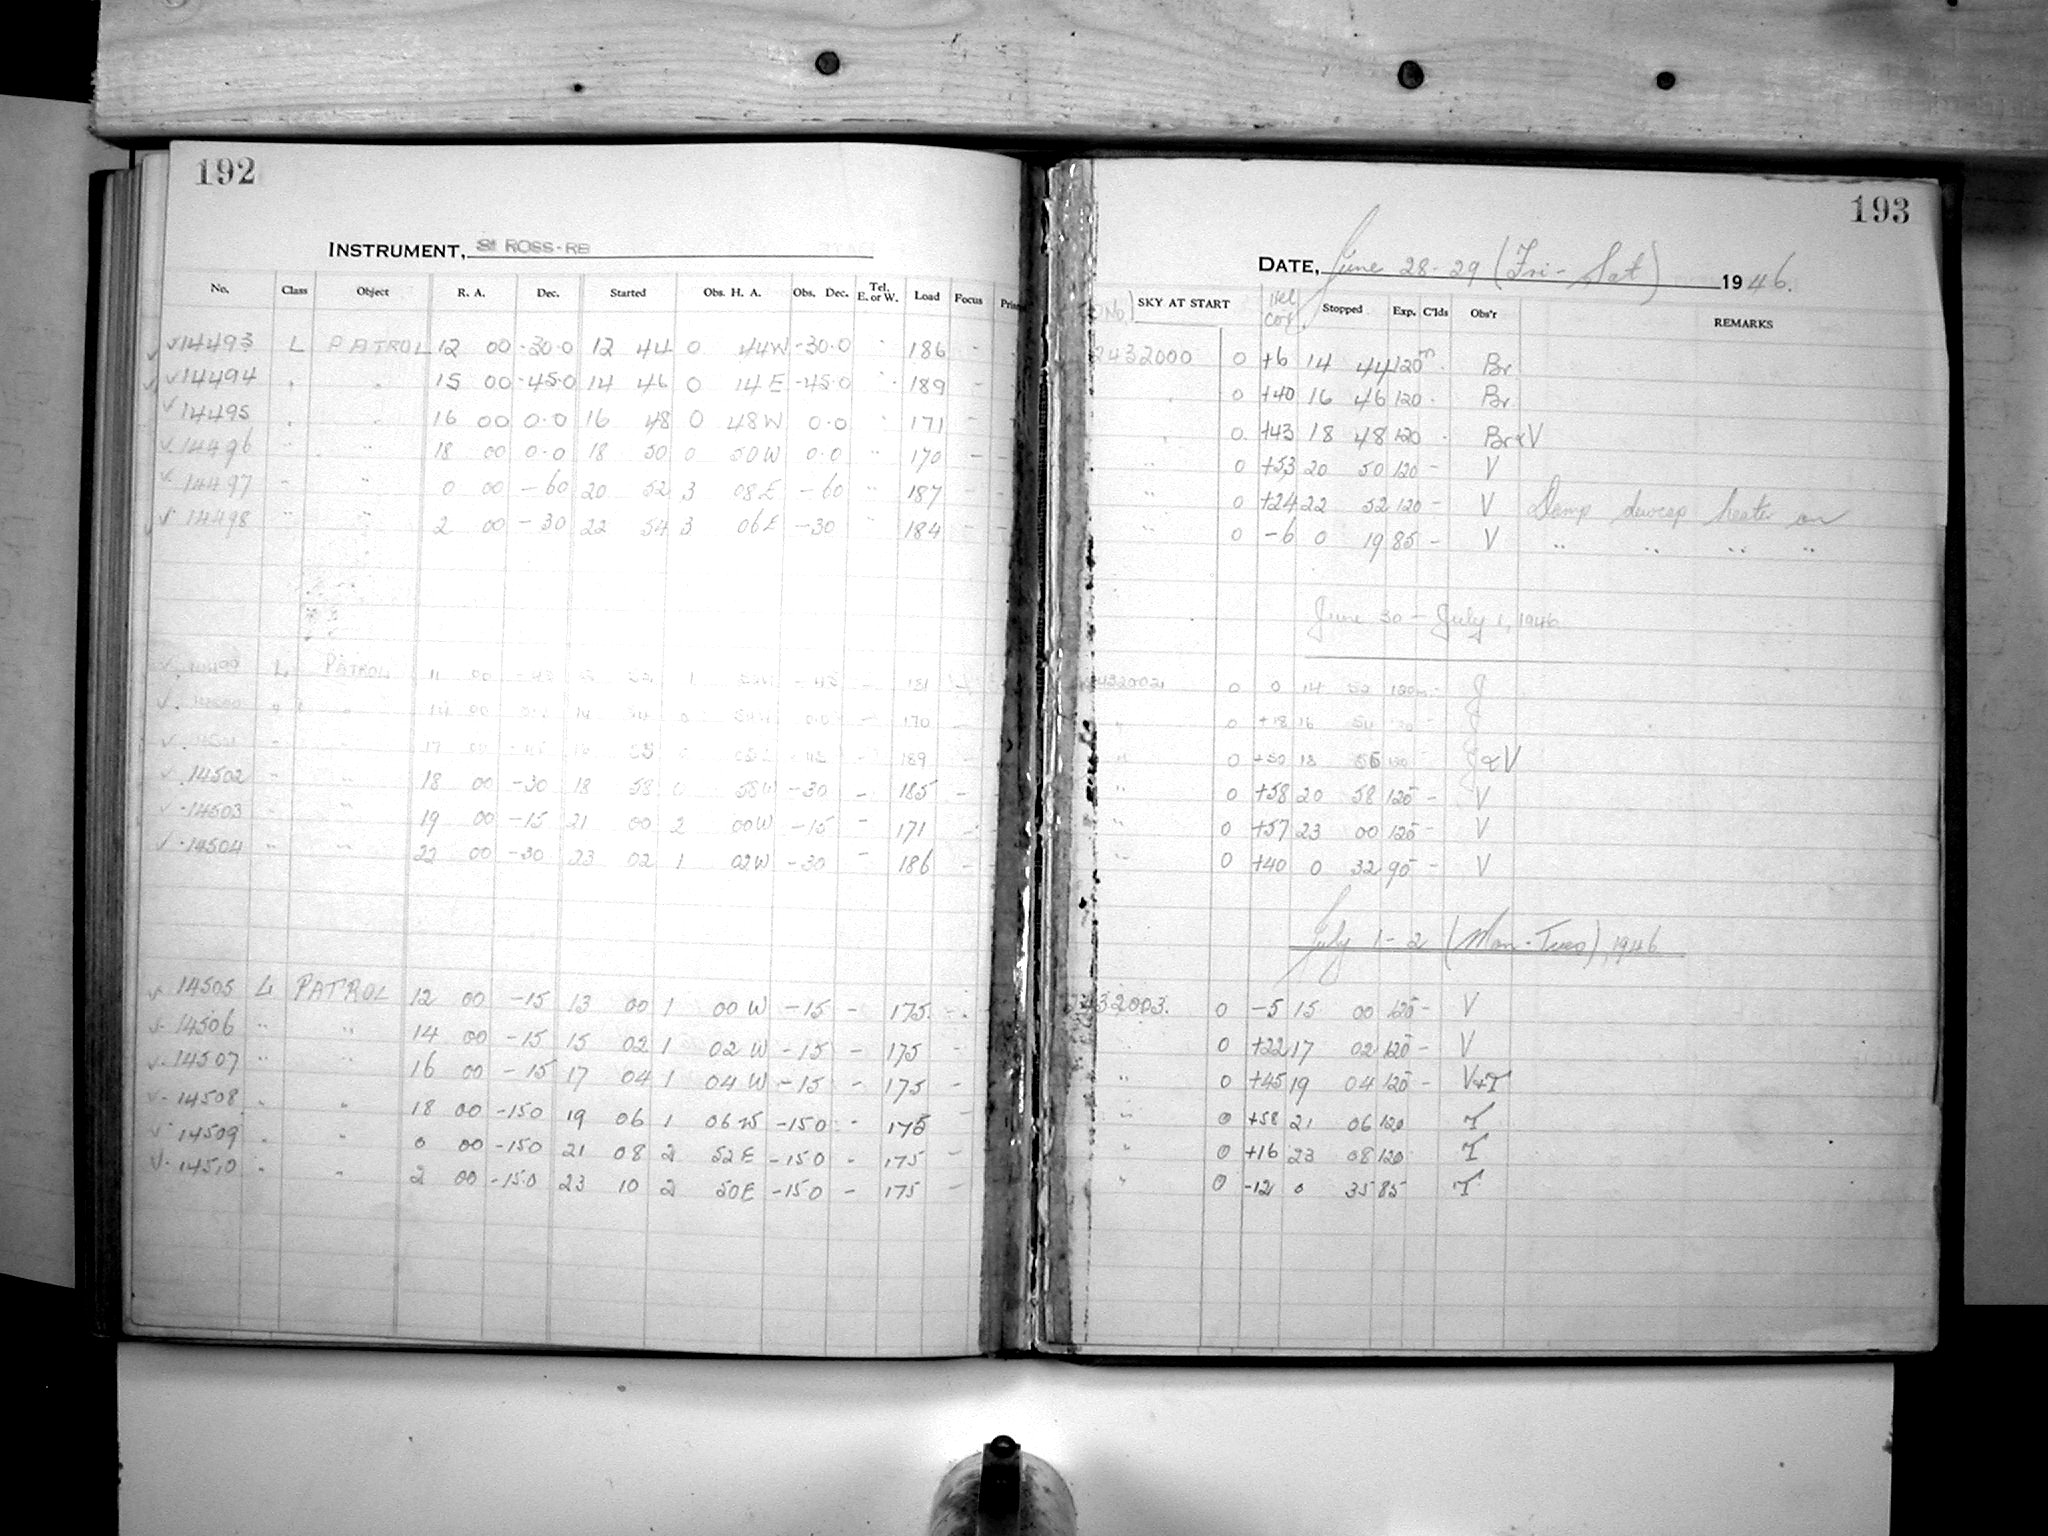 192
INSTRUMENT, ROSS-RB
No. Class Object R. A. Dec. Started Obs. H. A. Obs. Dec. Tel. E. or W. Load Focus
✓14493 L PATROL 12 00 -30.0 12 44 0 44W -30.0 " 186 -
✓14494 " " 15 00 -45.0 14 46 0 14E -45.0 " 189 -
✓14495 " " 16 00 0.0 16 48 0 48W 0.0 " 171 -
✓14496 " " 18 00 0.0 18 50 0 50W 0.0 " 170 -
✓14497 " " 0 00 -60 20 52 3 08E -60 " 187 -
✓14498 " " 2 00 -30 22 54 3 06E -30 " 184 -
✓ L PATROL 11 00 -45 1 -45 - 181 -
✓ " 14 00 14 54 0 0.0 - 170 -
✓ " " 17 00 -45 - 189 -
✓ 14502 " " 18 00 -30 18 58 0 58W -30 - 185 -
✓ 14503 " " 19 00 -15 21 00 2 00W -15 - 171 -
✓ 14504 " " 22 00 -30 23 02 1 02W -30 - 186 -
✓ 14505 L PATROL 12 00 -15 13 00 1 00W -15 - 175 -
✓ 14506 " " 14 00 -15 15 02 1 02W -15 - 175 -
✓ 14507 " " 16 00 -15 17 04 1 04W -15 - 175 -
✓ 14508 " " 18 00 -15.0 19 06 1 06W -15.0 - 175 -
✓ 14509 " " 0 00 -15.0 21 08 2 52E -15.0 - 175 -
✓ 14510 " " 2 00 -15.0 23 10 2 50E -15.0 - 175 -
193
DATE, June 28-29 (Fri-Sat) 1946.
SKY AT START Stopped Exp. C'lds Obs'r REMARKS
2432000 0 +6 14 44 120m - Br
" 0 +40 16 46 120 - Br
" 0 +43 18 48 120 - Br & V
" 0 +53 20 50 120 - V
" 0 +24 22 52 120 - V Damp dewcap heater on
" 0 -6 0 19 85 - V " " " "
June 30 - July 1, 1946
2432002 0 0 14 52 120m - J
" 0 +18 16 54 120 - J
" 0 +50 18 56 120 J & V
" 0 +58 20 58 120 - V
" 0 +57 23 00 120 - V
" 0 +40 0 32 90 - V
July 1-2 (Mon-Tues), 1946
2432003. 0 -5 15 00 120 - V
" 0 +22 17 02 120 - V
" 0 +45 19 04 120 - V+T
" 0 +58 21 06 120 T
" 0 +16 23 08 120 T
" 0 -12 0 35 85 T